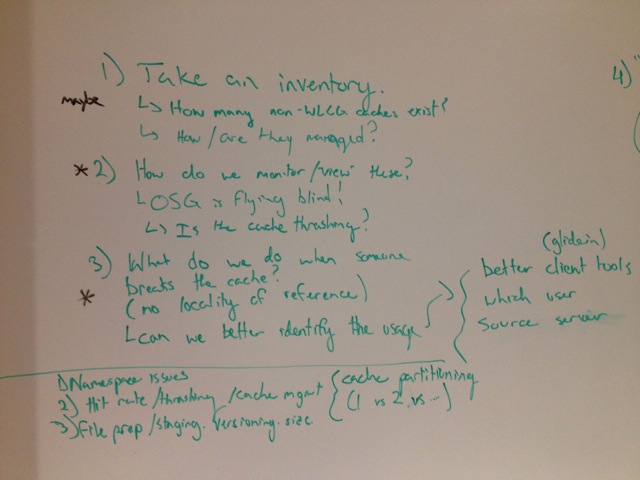 1) Take an inventory.
maybe ↳ How many non-WLCG caches exist?
↳ How/are they managed?
* 2) How do we monitor/"view" these?
↳ OSG is flying blind!
↳ Is the cache thrashing?
3) What do we do when someone
breaks the cache?
* (no locality of reference)
↳ can we better identify the usage
(glidein)
better client tools
which user
source server
1) Namespace issues
2) Hit rate/thrashing/cache mgmt
3) File prep/staging. versioning. size
cache partitioning
(1 vs 2 vs ...)
4) "